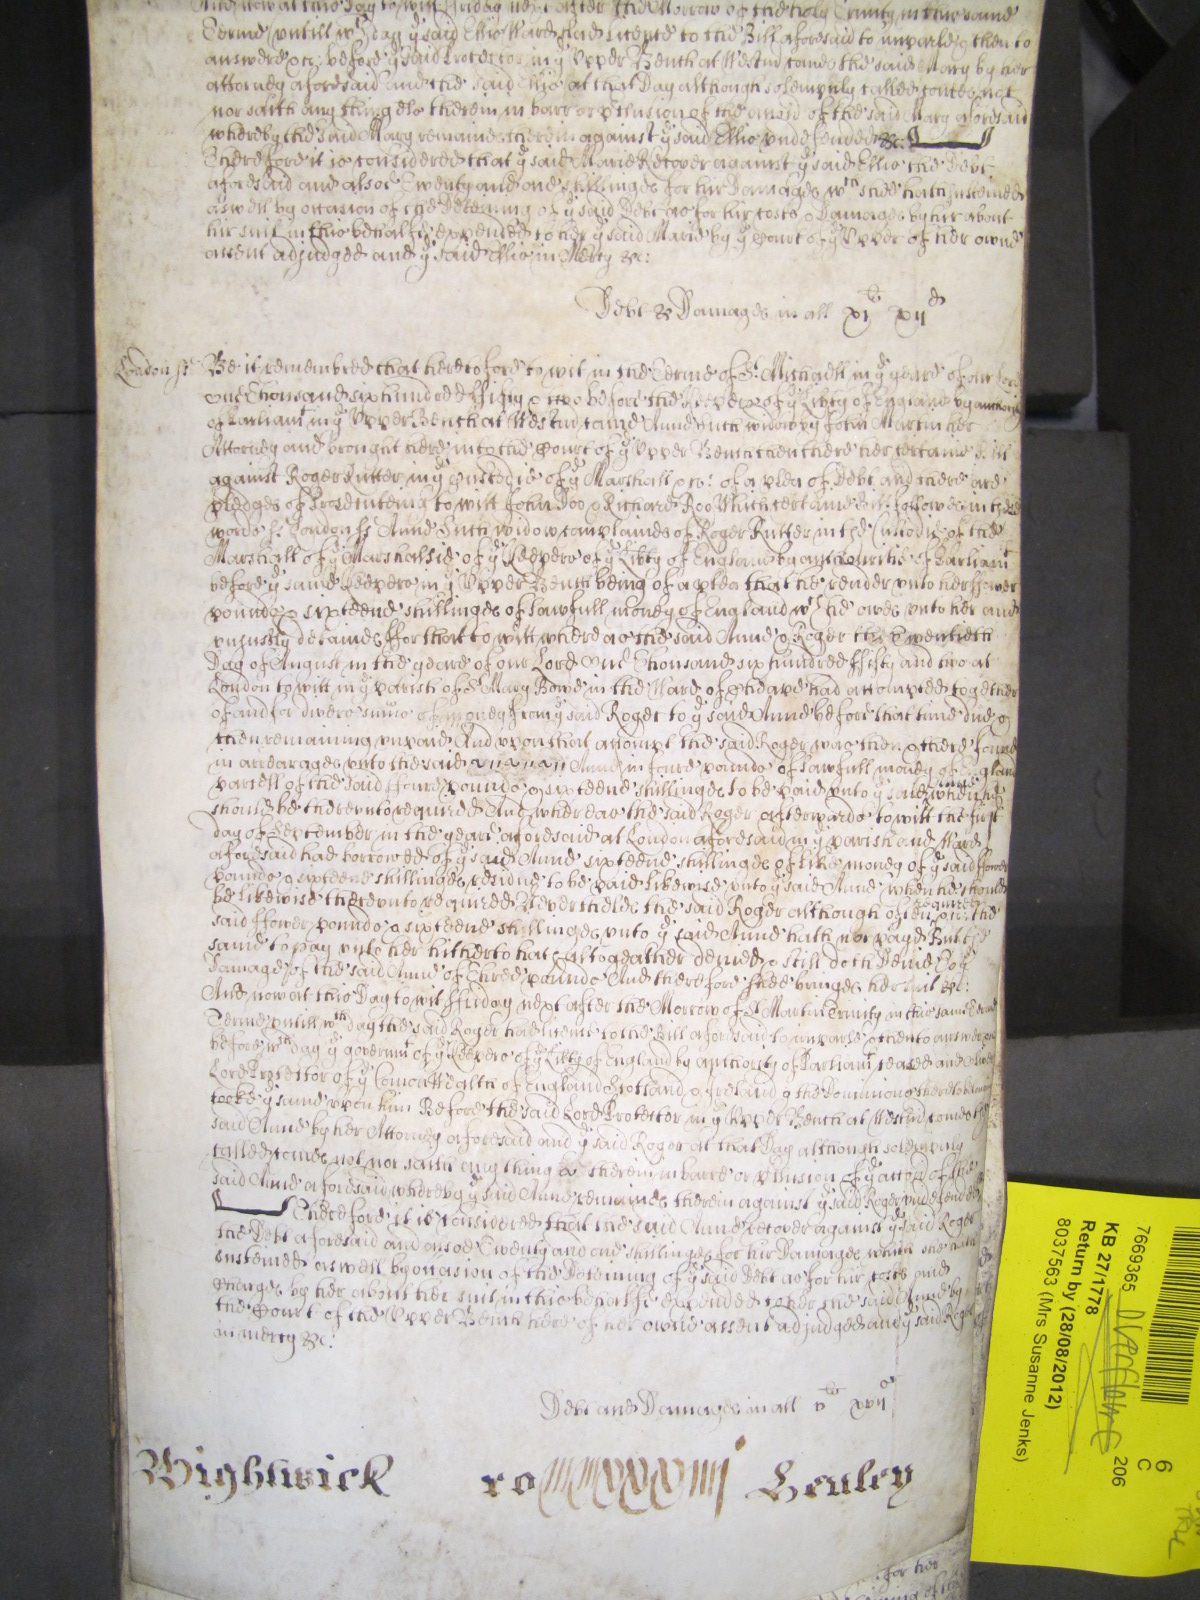 And now at this Day to wit ffriday next after the Morrow of the holy Trinity in this same
Terme untill wch day ye said Ellis Ward had licence to the Bill aforesaid to imparle & then to
answere &c: before ye said Protector in ye Upper Bench at Westm comes the said Mary by her
attorney aforesaid and the said Ellis at that Day although solempnly called comes not
nor saith any thing els therein in barr or of the said Mary aforesaid
whereby the said Mary remaines therein against ye said Ellis undefended &c:
Therefore it is considered that ye said Marie Recover against ye said Ellis the Debt
aforesaid and alsoe Twenty and one shillinges for her Damages wch shee hath susteined
aswell by occasion of the Deteining of ye said Debt as for her costs & Damages by her about
her suit in this behalfe expended to her ye said Marie by ye Court of ye Upper of her owne
assent adjudged and ye said Ellis in Mercy &c:
Debt & Damages in all xjli xijd
London ss
Be it remembred that heretofore to wit in the Terme of St Michaell in ye yeare of our Lord
one Thousand six hundred ffifty & two before the Keepers of ye Libty of England by authority
of Parliamt in ye Upper Bench at Westm came Anne widow by John Martin her
Attorney and brought here into the Court of ye Upper Bench then there her certaine Bill
against Roger Rutter in ye Custodie of ye Marshall &c: of a plea of Debt and there are
pledges of Prosecuteing to witt John Doo & Richard Roo Which certaine Bill followes in these
words ss London ss Anne widow complaines of Roger Rutter in the Custodie of the
Marshall of ye Marshalsie of ye Keepers of ye Libty of England by authoritie of Parliamt
before ye same Keepers in ye Upper Bench being of a plea that he render unto her fower
pounds & sixteene shillinges of lawfull money of England wch he owes unto her and
unjustly detaines ffor that to witt whereas the said Anne & Roger the Twentieth
Day of August in the yeare of our Lord One Thousand six hundred ffifty and two at
London to witt in ye parish of St Mary Bowe in the Ward of Cheape had accompted together
of and for divers summs of money from ye said Roger to ye said Anne before that time due &
then remaining unpaid And upon that accompt the said Roger was then & there found
in arrearages unto the said Anne in foure pounds of lawfull money of England
parcell of the said ffoure pounds & sixteene shillinges to be paid unto ye said Anne when hee
should be thereunto required And whereas the said Roger afterwards to witt the first
day of September in the yeare aforesaid at London aforesaid in ye parish and Ward
aforesaid had borrowed of ye said Anne sixteene shillinges of like money of ye said ffower
pounds & sixteene shillinges residue to be paid likewise unto ye said Anne when he should
be likewise thereunto required Neverthelesse the said Roger although often required &c: the
said ffower pounds & sixteene shillinges unto ye said Anne hath not payd But the
same to pay unto her hitherto hath altogeather denied & still doth Denie To ye
Damage of the said Anne of Three pounds And therefore shee bringes her suit &c:
And now at this Day to wit ffriday next after the Morrow of Trinity in this same Terme
Terme untill wch day the said Roger had licence to the Bill aforesaid to imparle & then to answere &c
before wch day ye governmt of ye Keepers of ye Libty of England by authority of Parliamt ceased and
Lord Protector of ye Comonwealth of England Scotland & Ireland & the Dominions thereto belonging
tooke ye same upon him Before the said Lord Protector in ye Upper Bench at Westm comes the
said Anne by her Attorney aforesaid and ye said Roger at that Day although solempnly
called comes not nor saith any thing els therein in barre or of ye of the
said Anne aforesaid whereby ye said Anne remaines therein against ye said Roger undefended
Therefore it is considered that the said Anne recover against ye said Roger
the Debt aforesaid and alsoe Twenty and one shillinges for her Damages which shee hath
susteined aswell by occasion of the Deteining of ye said Debt as for her costs and
charges by her about her suit in this behalfe expended to her the said Anne by
the Court of the Upper Bench here of her owne assent adjudged and ye said Roger
in mercy &c:
Debt and Damages in all vli xvijs
Wightwick ro Henley
7669365
KB 27/1778
Return by (28/08/2012)
8037563 (Mrs Susanne Jenks)
6
C
206
for her